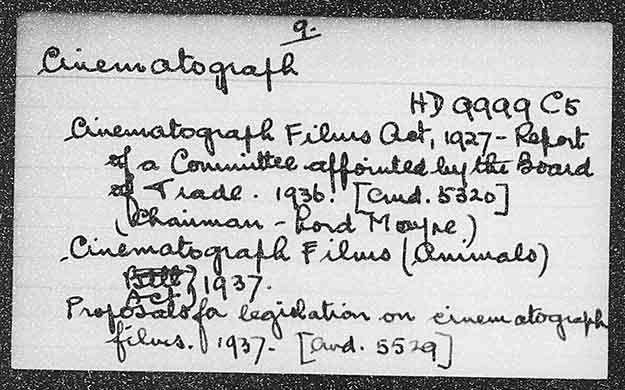 9.
Cinematograph
HD 9999 C5
Cinematograph Films Act, 1927 - Report
of a Committee appointed by the Board
of Trade. 1936. [Cmd. 5320]
(Chairman - Lord Moyne)
Cinematograph Films (Animals)
Bill
Act, 1937.
Proposals for legislation on cinematograph
films. 1937. [Cmd. 5529]